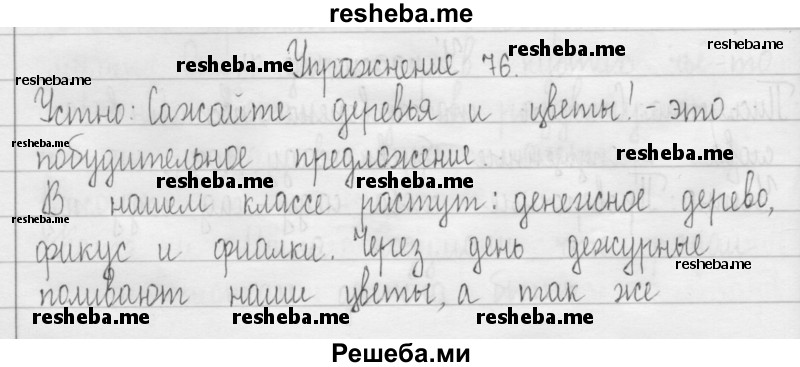 resheba.me
Упражнение 76.
resheba.me
resheba.me
resheba.me
resheba.me
Устно: Сажайте деревья и цветы! - это
побудительное предложение.
resheba.me
resheba.me
resheba.me
В нашем классе растут: денежное дерево,
resheba.me
фикус и фиалки. Через день дежурные
resheba.me
поливают наши цветы, а так же
resheba.me
resheba.me
resheba.me
Решеба.ми